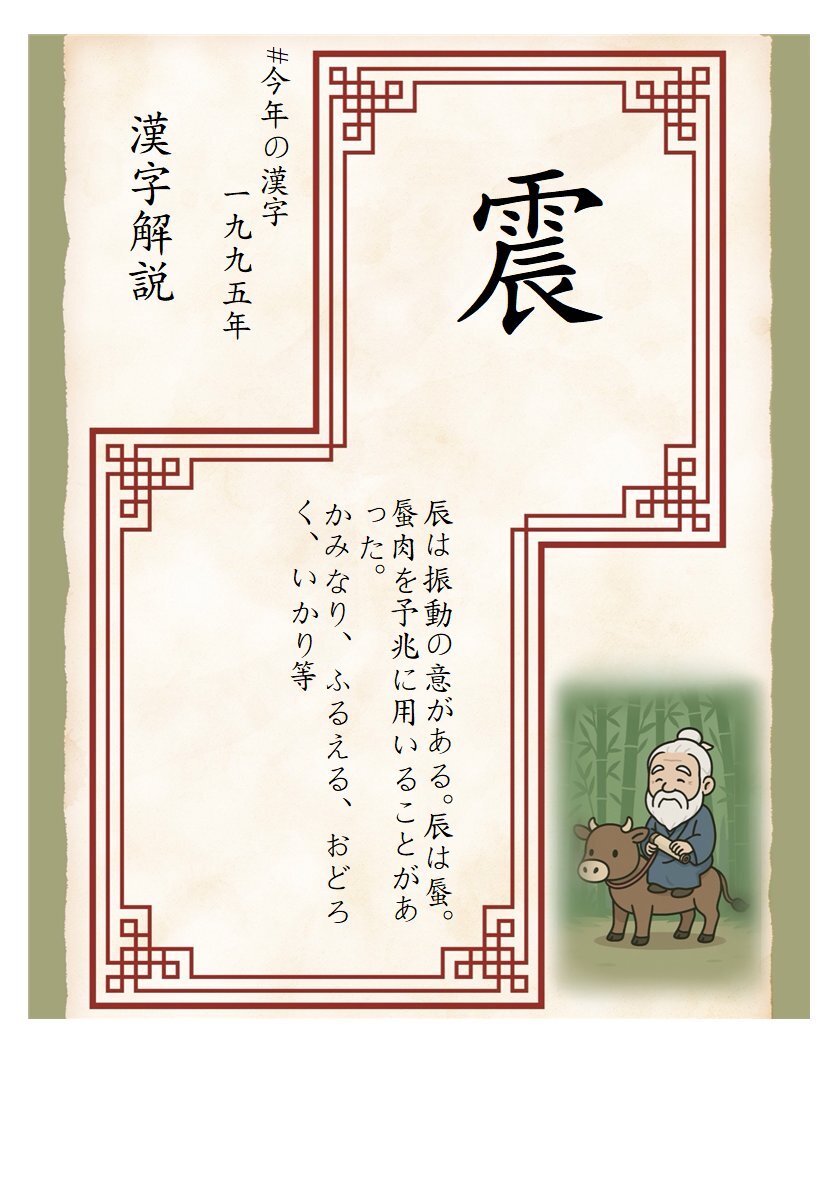 震
#今年の漢字
一九九五年
漢字解説
辰は振動の意がある。辰は蜃。
蜃肉を予兆に用いることがあ
った。
かみなり、ふるえる、おどろ
く、いかり等